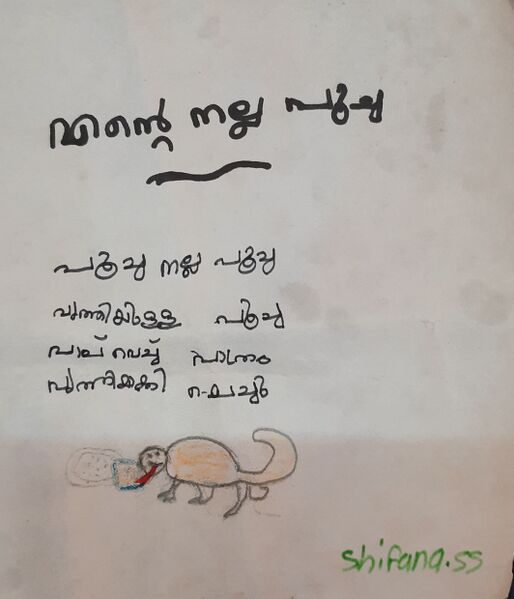 എന്റെ നല്ല പൂച്ച
പൂച്ച നല്ല പൂച്ച
വൃത്തിയുള്ള പൂച്ച
പാല് വെച്ച പാത്രം
വൃത്തിയാക്കി വെച്ചു
shifana.ss